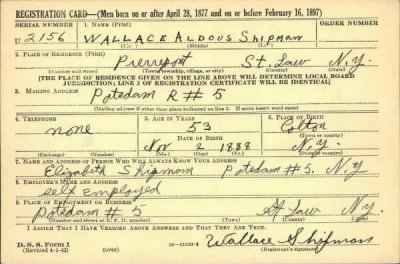 REGISTRATION CARD—(Men born on or after April 28, 1877 and on or before February 16, 1897)
SERIAL NUMBER 1. NAME (Print) ORDER NUMBER
U 2156 WALLACE ALDOUS Shipman
(First) (Middle) (Last)
2. PLACE OF RESIDENCE (Print)
Pierrepont St. Law N.Y.
(Number and street) (Town, township, village, or city) (County) (State)
[THE PLACE OF RESIDENCE GIVEN ON THE LINE ABOVE WILL DETERMINE LOCAL BOARD
JURISDICTION; LINE 2 OF REGISTRATION CERTIFICATE WILL BE IDENTICAL]
3. MAILING ADDRESS
Potsdam R # 5
[Mailing address if other than place indicated on line 2. If same insert word same]
4. TELEPHONE 5. AGE IN YEARS 6. PLACE OF BIRTH
none 53 Colton
DATE OF BIRTH (Town or county)
Nov 2 1888 N.Y.
(Exchange) (Number) (Mo.) (Day) (Yr.) (State or country)
7. NAME AND ADDRESS OF PERSON WHO WILL ALWAYS KNOW YOUR ADDRESS
Elizabeth Shipman Potsdam # 5. N.Y
8. EMPLOYER'S NAME AND ADDRESS
Self Employed
9. PLACE OF EMPLOYMENT OR BUSINESS
Potsdam # 5 St Law N.Y.
(Number and street or R. F. D. number) (Town) (County) (State)
I AFFIRM THAT I HAVE VERIFIED ABOVE ANSWERS AND THAT THEY ARE TRUE.
D. S. S. Form 1
(Revised 4-1-42) (over) Wallace Shipman
(Registrant's signature)